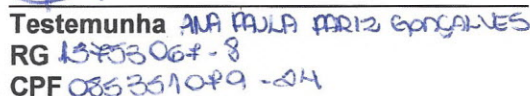 Testemunha ANA PAULA PARIZ GONÇALVES
RG 13753067-8
CPF 085351079-24